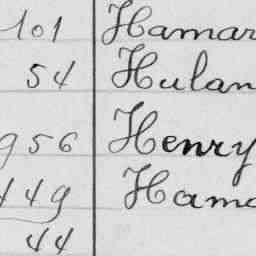 101 Hamar
54 Hulan
956 Henry
449 Hama
44